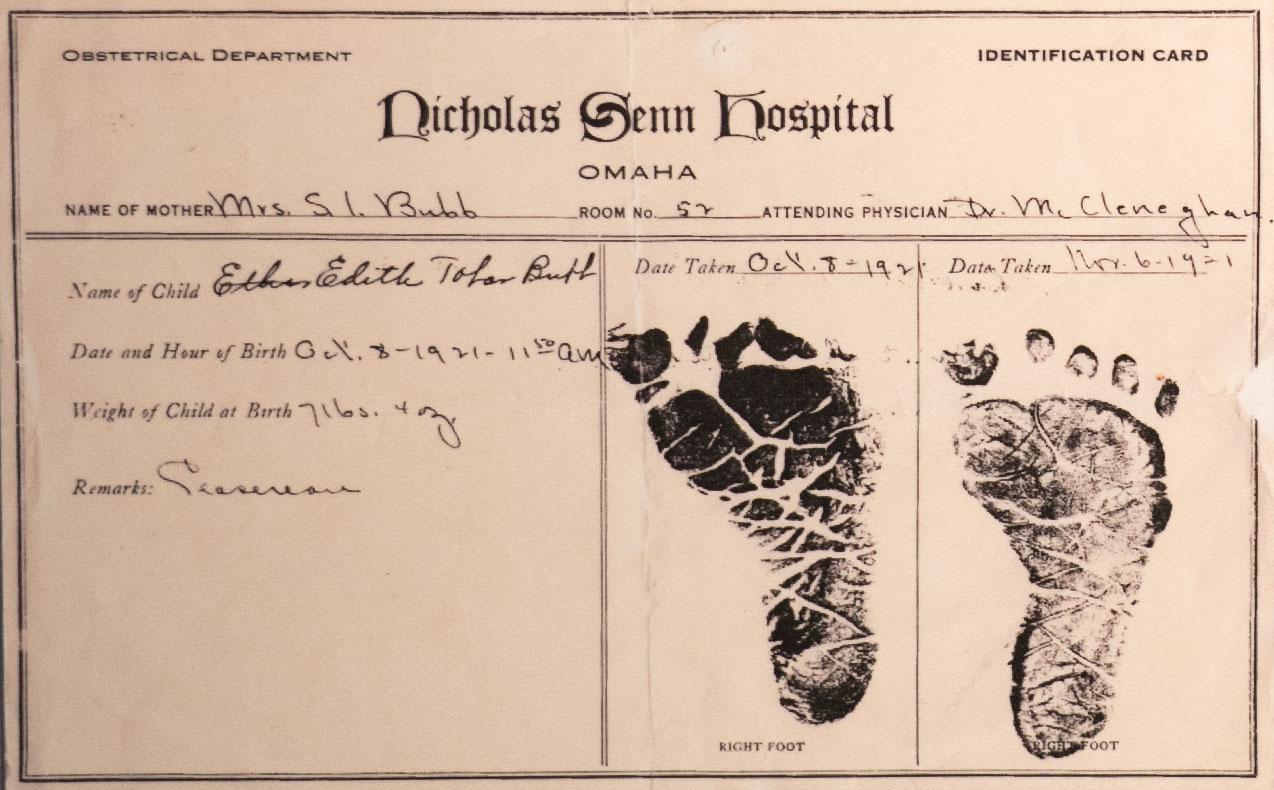 OBSTETRICAL DEPARTMENT IDENTIFICATION CARD
Nicholas Senn Hospital
OMAHA
NAME OF MOTHER Mrs. S. I. Bubb ROOM No. 52 ATTENDING PHYSICIAN Dr. McCleneghan.
Date Taken Oct. 8-1921 Date Taken Nov. 6-1921
Name of Child Edith Bubb
Date and Hour of Birth Oct. 8-1921-11 50 am
Weight of Child at Birth 7 lbs. 4 oz
Remarks:
RIGHT FOOT RIGHT FOOT